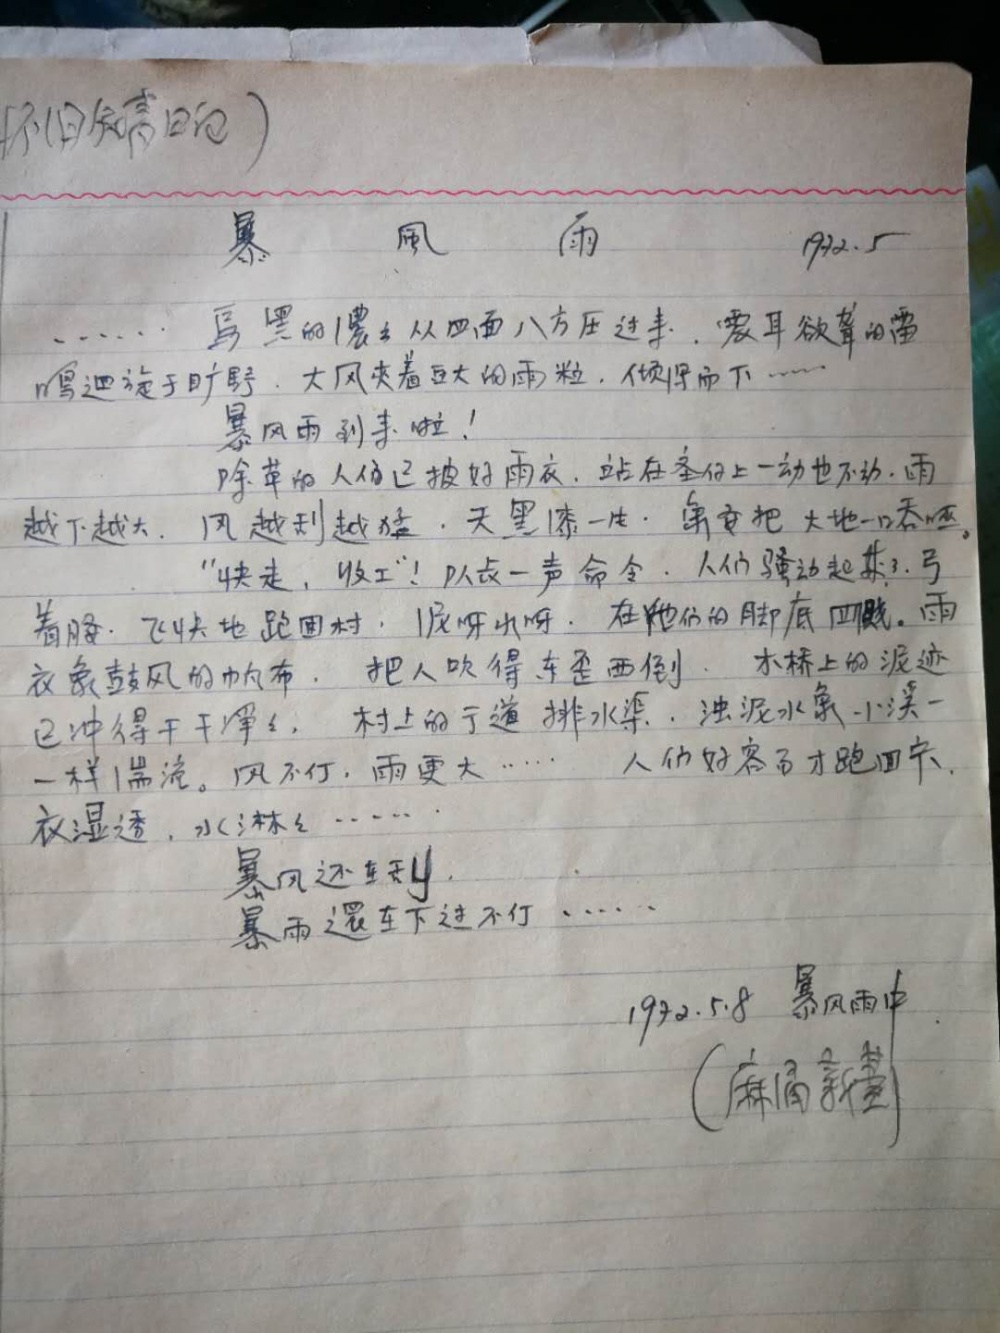 怀旧激情日记)
暴風雨 1972.5
……乌黑的濃云从四面八方压过来,震耳欲聋的雷
鸣迴旋于旷野,大风夹着豆大的雨粒,倾盆而下……
暴风雨到来啦!
除草的人们已披好雨衣,站在垄上一动也不动,雨
越下越大,风越刮越猛,天黑漆一片,象要把大地一口吞噬。
“快走,收工”!队长一声命令,人们骚动起来了,弓
着腰,飞快地跑回村,泥呀水呀,在她们的脚底四溅。雨
衣象鼓风的帆布,把人吹得东歪西倒,木桥上的泥迹
已冲得干干净々,村上的亍道排水渠,浊泥水象小溪一
一样湍流。风不仃,雨更大……人们好容易才跑回家,
衣湿透,水淋々……
暴风还在刮,
暴雨還在下过不仃……
1972.5.8 暴风雨中
(麻涌新基)